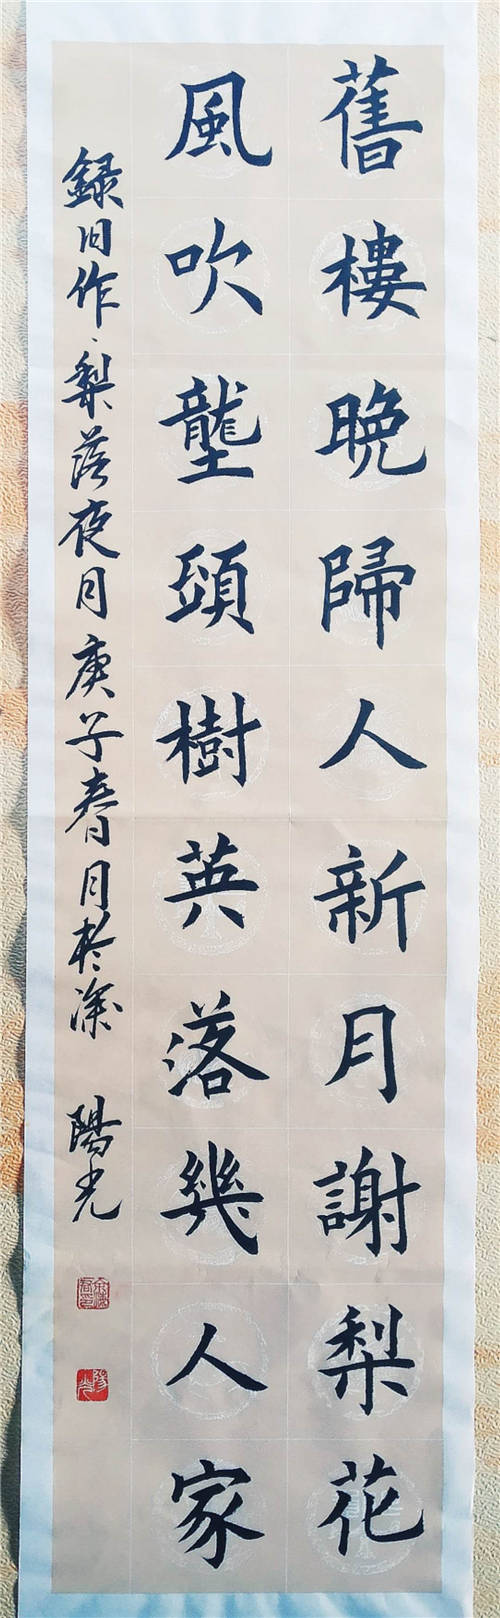 舊樓晚歸人新月謝梨花
風吹壟頭樹英落幾人家
録旧作、梨落夜月庚子春月於深 陽光